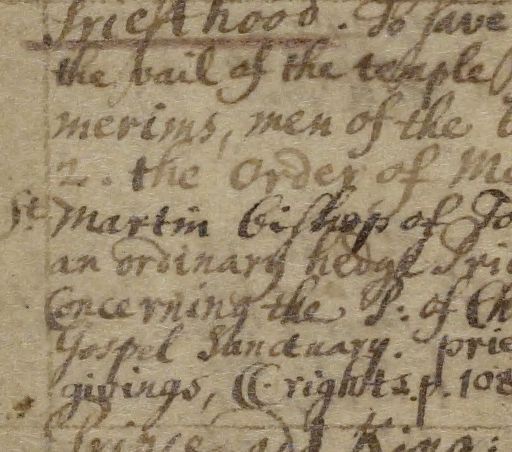 Priesthood. To save
the vail of the temple
merims, men of the
2. the Order of Me
St Martin bishop of To
an ordinary hedge Prie
Concerning the P: of Ch
Gospel Sanctuary. prie
givings, &c. rights. p. 108
and King: